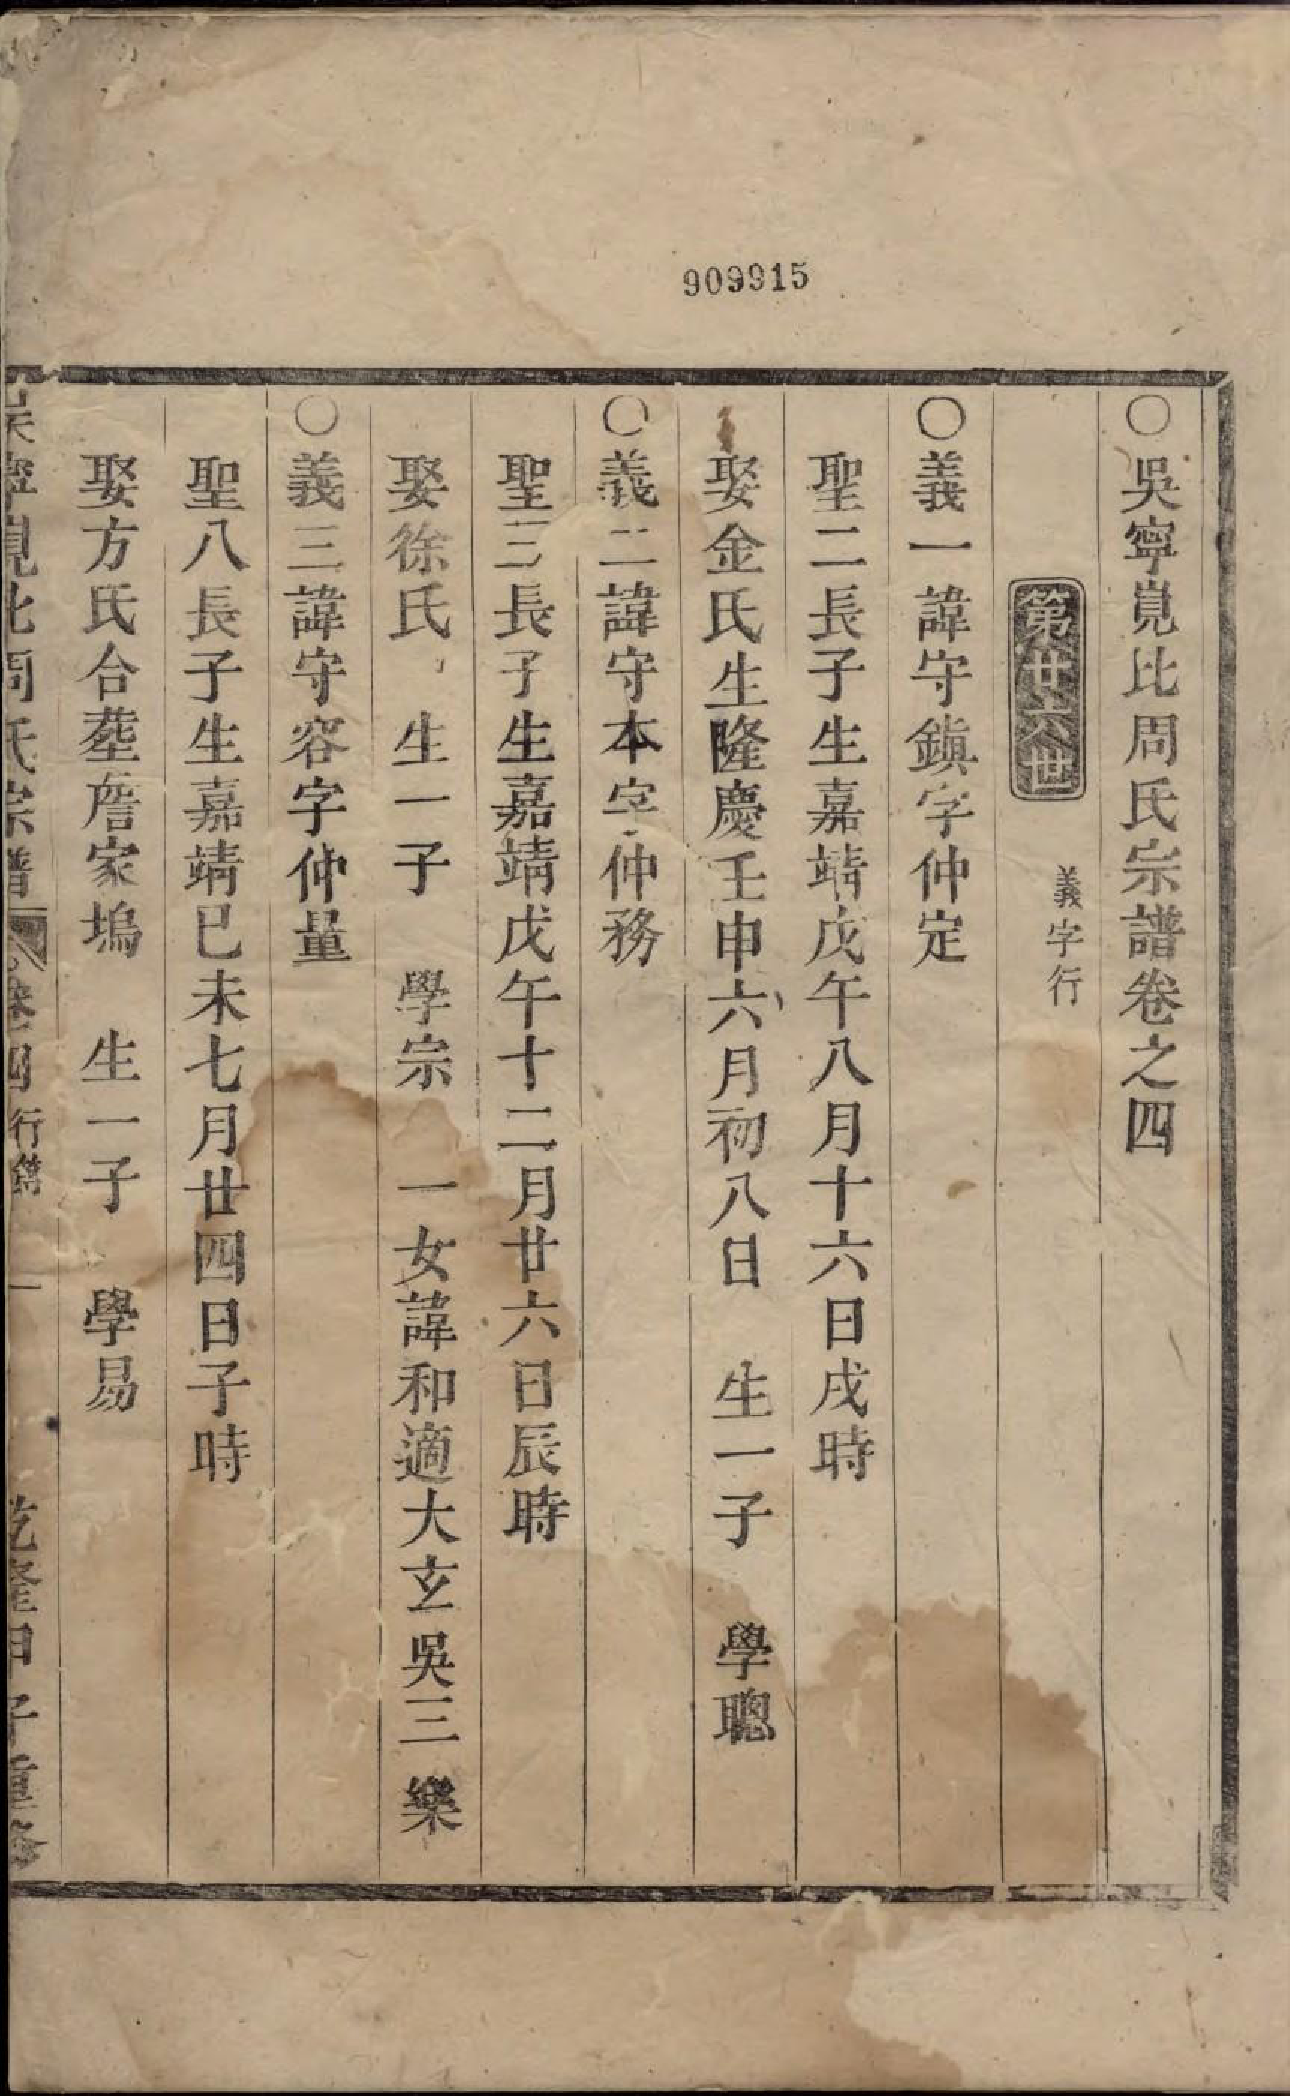 909915
○吳寧峴北周氏宗譜卷之四
第廿六世
義字行
○義一諱守鎮字仲定
聖二長子生嘉靖戊午八月十六日戌時
娶金氏生隆慶壬申六月初八日 生一子 學聰
○義二諱守本字仲務
聖三長子生嘉靖戊午十二月廿六日辰時
娶徐氏 生一子 學宗 一女諱和適大玄吳三樂
○義三諱守容字仲量
聖八長子生嘉靖巳未七月廿四日子時
娶方氏合塟詹家塢 生一子 學易
吳寧峴北周氏宗譜 卷四 行傳 一 乾隆甲子重修